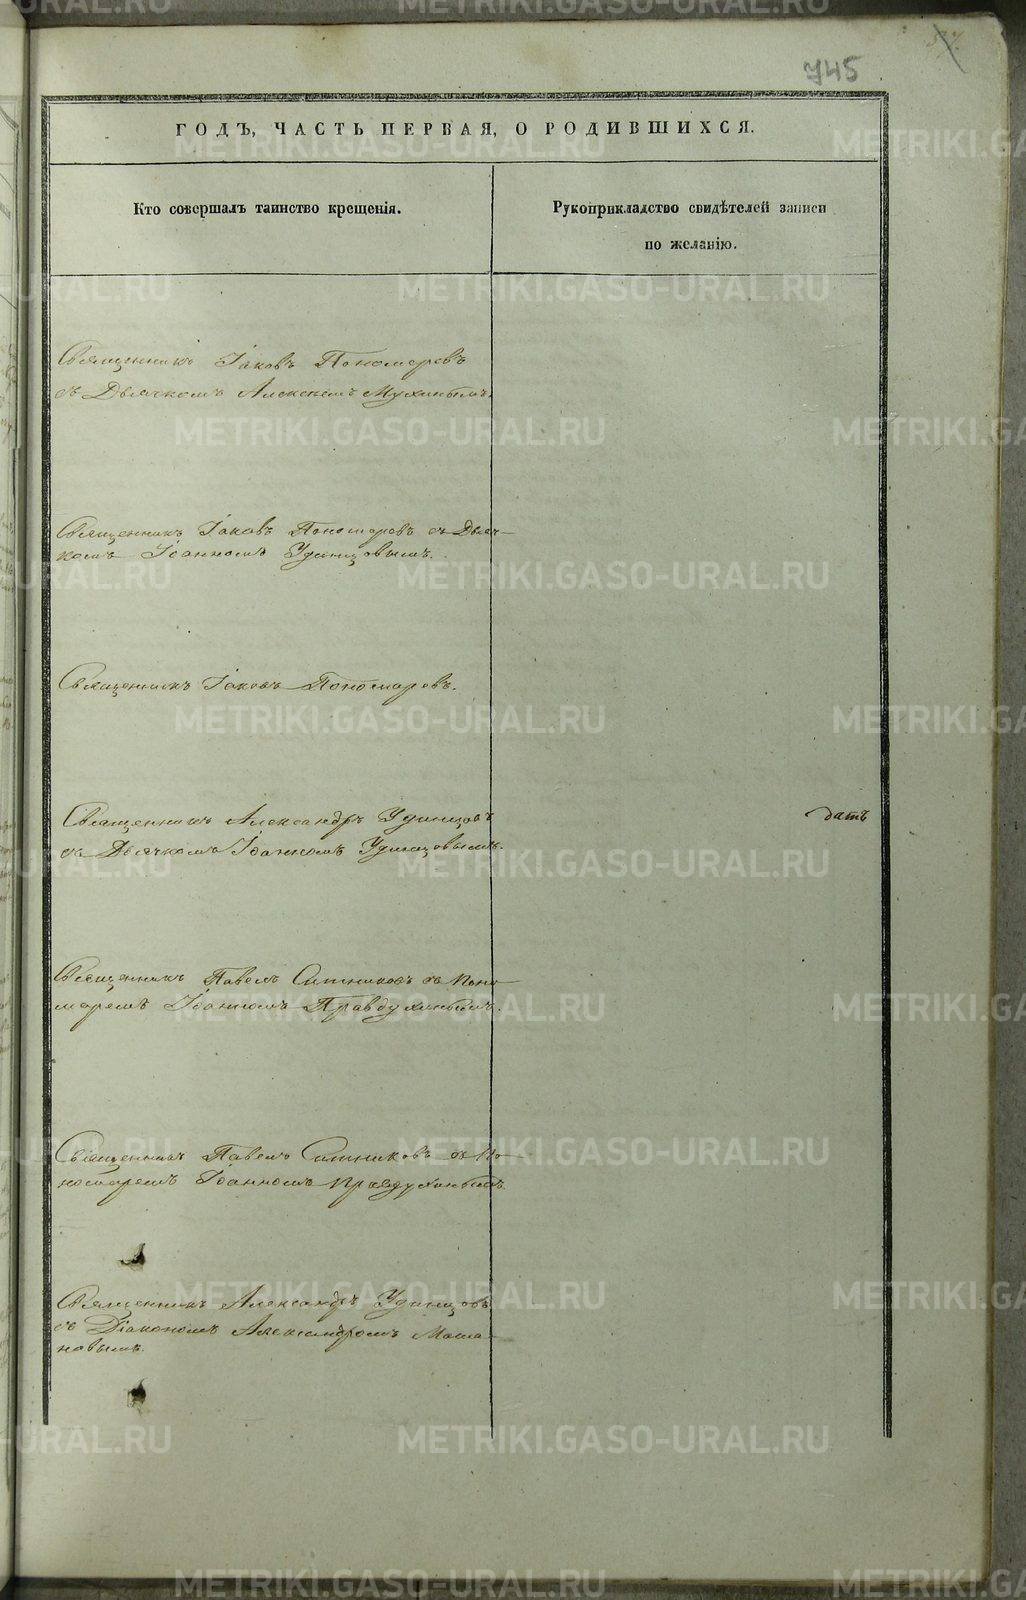 745
ГОДЪ, ЧАСТЬ ПЕРВАЯ, О РОДИВШИХСЯ.
Кто совершалъ таинство крещенія.
Рукоприкладство свидѣтелей записи
по желанію.
Священникъ Іаковъ Пономаревъ
съ Дьячкомъ Алексѣемъ Мухинымъ.
Священникъ Іаковъ Пономаревъ съ Дьяч-
комъ Іоанномъ Удинцовымъ.
Священникъ Іаковъ Пономаревъ.
Священникъ Александръ Удинцовъ
съ Дьячкомъ Іоанномъ Удинцовымъ.
датъ
Священникъ Павелъ Ситниковъ съ Поно-
маремъ Іоанномъ Правдухинымъ.
Священникъ Павелъ Ситниковъ съ По-
номаремъ Іоанномъ Правдухинымъ
Священникъ Александръ Удинцовъ
съ Діакономъ Александромъ
METRIKI.GASO-URAL.RU